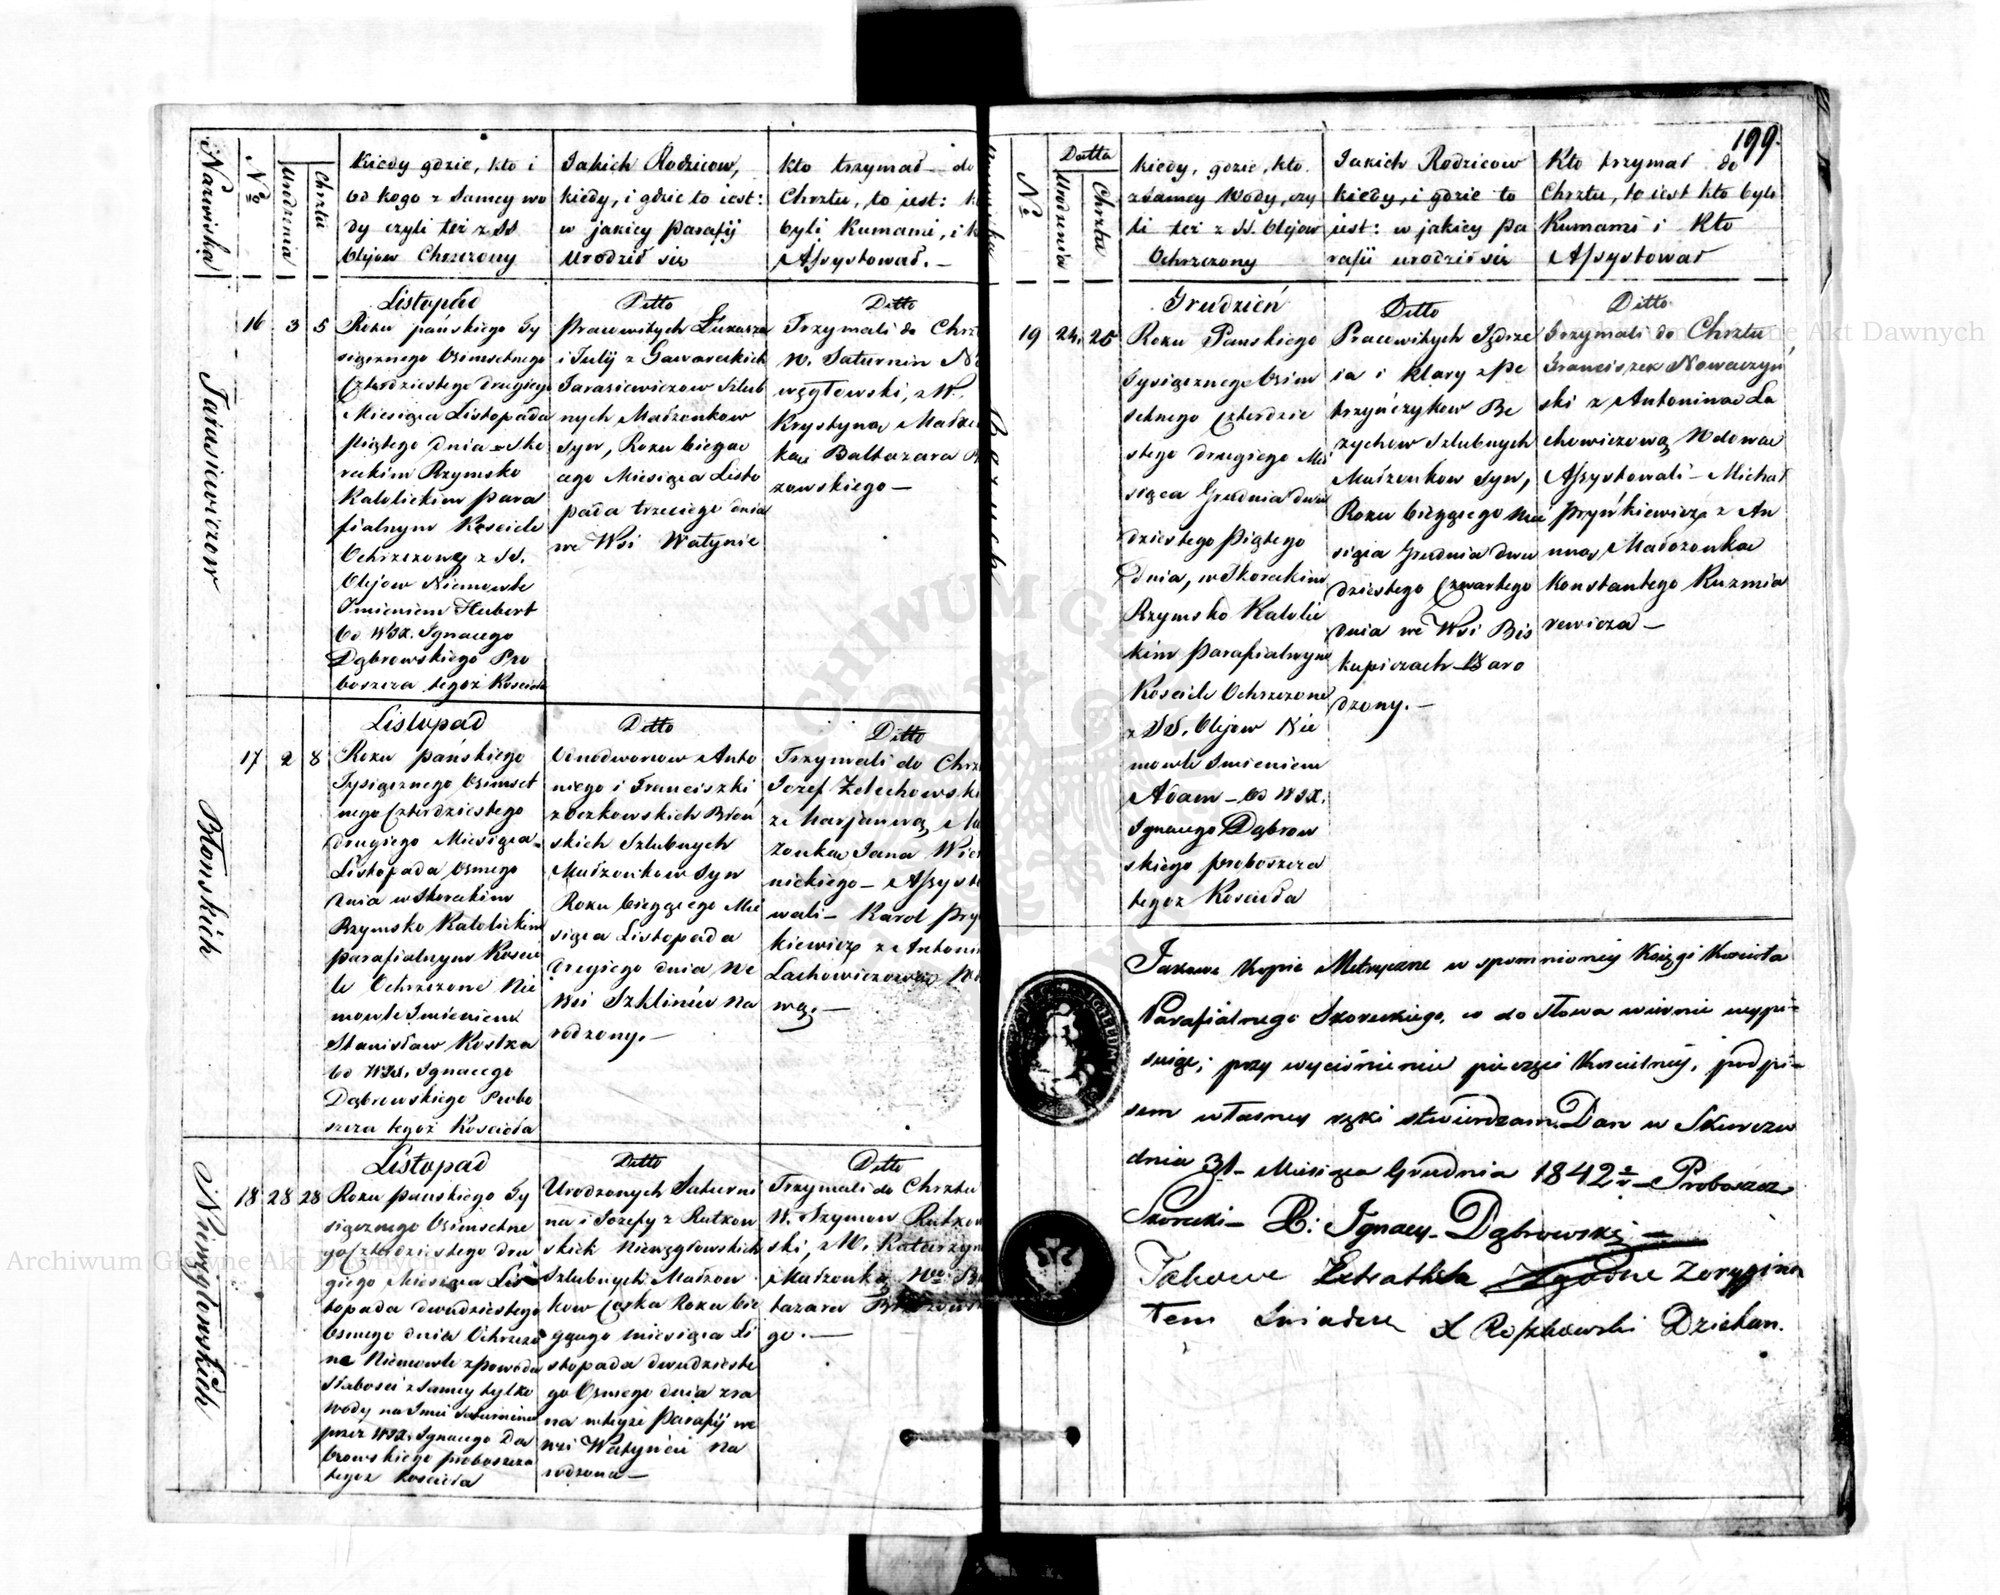 Nazwiska
No
Urodzenia
Chrztu
Kiedy gdzie, kto i
od kogo z samey wo
dy czyli też z SS
Olejow Chrzczony
Jakich Rodzicow,
kiedy, i gdzie to iest:
w jakiey Parafij
urodził się
Kto trzymał do
Chrztu, to iest:
byli Kumami, i
Assystował. —
Taraśiewiczow
16 3 5
Listopad
Roku pańskiego Ty
siącznego Osimsetnego
Czterdziestego drugiego
Miesiąca Listopada
Piątego dnia w Sko
reckim Rzymsko
Katolickim para
fialnym Kosciele
Ochrzczone z SS.
Olejow Niemowle
Imieniem Hubert
od WJX. Ignacego
Dąbrowskiego Pro
boszcza tegoż Koscioła
Ditto
Pracowitych Łukasza
i Julij z Gaworeckich
Tarasiewiczow Szlub
nych Małżonkow
Syn, Roku bieżąc
cego Miesiąca Listo
pada trzeciego dnia
we Wsi Watynie
Ditto
Trzymali do Chrz
W. Saturnin Ni
węgłowski, z W.
Krystyną Małżo
ką Baltazara
zowskiego —
Błońskich
17 2 8
Listopad
Roku pańskiego
Tysiącznego Osimset
nego Czterdziestego
drugiego Miesiąca
Listopada Osmego
dnia w Skoreckim
Rzymsko Katolickim
parafialnym Koscie
le Ochrzczone Nie
mowle Imieniem
Stanisław Kostka
od WJX. Ignacego
Dąbrowskiego Probo
szcza tegoż Koscioła
Ditto
Odnodworcow Anto
niego i Franciszki
z Oczkowskich Błoń
skich Szlubnych
Małżonkow Syn
Roku bieżącego Mie
siąca Listopada
Drugiego dnia we
Wsi Szklinie Na
rodzony. —
Ditto
Trzymali do Chrz
Jozef Zelechowsk
z Marjanną Ma
żonką Jana Wi
nickiego — Assyst
wali — Karol Pry
kiewicz z Antoni
Lachowiczową W
wą. —
Niewęgłowskich
18 28 28
Listopad
Roku pańskiego Ty
siącznego Osimsetne
go Czterdziestego dru
giego Miesiąca Lis
topada dwudziestego
Osmego dnia Ochrzczo
ne Niemowle z powodu
słabosci z samey tylko
wody na Imie Saturnina
przez WJX. Ignacego Dą
browskiego proboszcza
tegoz Koscioła
Ditto
Urodzonych Saturni
na i Jozefy z Rutkow
skich Niewęgłowskich
Szlubnych Małżon
kow Corka Roku bie
żącego miesiąca Li
stopada dwudzieste
go Osmego dnia zra
na w teyże Parafij we
wsi Watyńcu Na
rodzona —
Ditto
Trzymali do Chrztu
W. Szymon Rutkow
ski, z W. Katarzyn
Małżonką
tazara
go. —
199.
No
Datta
Urodzenia
Chrztu
kiedy, gdzie, kto.
z samey Wody, czy
li też z SS. Olejow
Ochrzczony
Jakich Rodzicow
kiedy, i gdzie to
iest: w jakiey Pa
rafii urodził się
Kto trzymał do
Chrztu, to iest kto byli
Kumami i Kto
Assystował
19 24. 25
Grudzień
Roku Pańskiego
Tysiącznego Osim
setnego Czterdzie
stego drugiego Mie
siąca Grudnia dwu
dziestego Piątego
dnia, w Skoreckim
Rzymsko Katolic
kim Parafialnym
Kosciele Ochrzczone
z SS. Olejow Nie
mowle Imieniem
Adam — od WJX.
Ignacego Dąbrow
skiego proboszcza
tegoz Koscioła
Ditto
Pracowitych Jędrze
ia i Klary z Pe
trzyńczykow Be
zychow Szlubnych
Małżonkow Syn,
Roku bieżącego Mie
siąca Grudnia dwu
dziestego Czwartego
dnia we Wsi Bis
kupiczach Naro
dzony. —
Ditto
Trzymali do Chrztu
Franciszek Nowaczyń
ski z Antoniną La
chowiczową Wdową
Assystowali — Michał
Pryńkiewicz z An
nną Małżonką
Konstantego Kuzmia
rewicza —
Takowe Kopie Metryczne w spomnioney Księgi Koscioła
Parafialnego Skoreckiego, co do słowa wiernie wypi-
suiąc; przy wyciśnieniu pieczęci Koscielney, podpi-
sem własney ręki stwierdzam. Dan w Skurczu
dnia 31 Miesiąca Grudnia 1842 r. — Proboszcz
Skorecki — X: Ignacy Dąbrowski —
Takowe Extrakta Zgodne z oryginą
łem świadczę X Roszkowski Dziekan.
SIGILLUM
Archiwum Główne Akt Dawnych